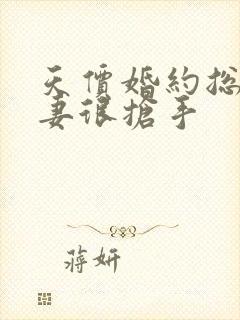 天價婚約総
妻很搶手
蔣妍